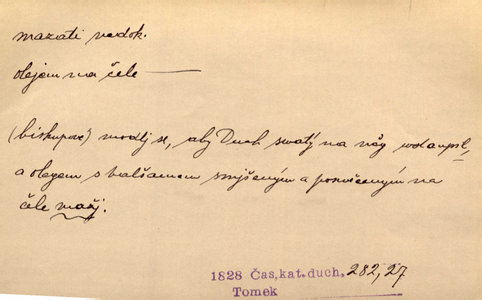 mazati nedok.
olejem na čele —
(biskupové) modlj se, aby Duch swatý na něg wstaupil,
a olegem s balšamem smjšeným a poswěceným na
čele mažj.
1828 Čas. kat. duch. 282, 27
Tomek